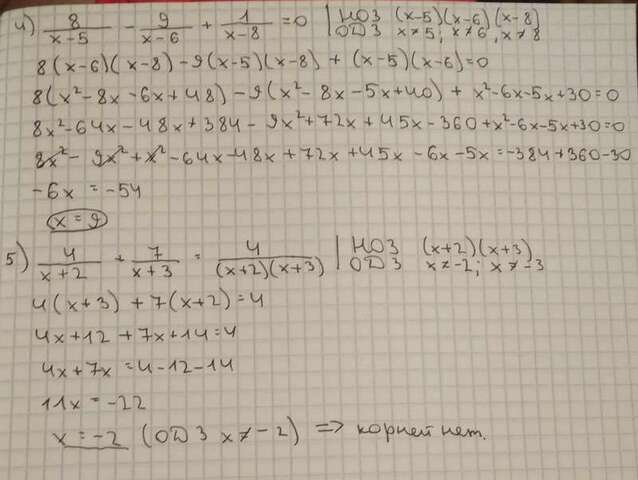 4) 8/(x-5) - 9/(x-6) + 1/(x-8) = 0 | НОЗ (x-5)(x-6)(x-8)
ОДЗ x≠5; x≠6, x≠8
8(x-6)(x-8) - 9(x-5)(x-8) + (x-5)(x-6) = 0
8(x²-8x-6x+48) - 9(x²-8x-5x+40) + x²-6x-5x+30=0
8x²-64x-48x+384-9x²+72x+45x-360+x²-6x-5x+30=0
8x²-9x²+x²-64x-48x+72x+45x-6x-5x=-384+360-30
-6x = -54
x = 9
5) 4/(x+2) + 7/(x+3) = 4/((x+2)(x+3)) | НОЗ (x+2)(x+3)
ОДЗ x≠-2; x≠-3
4(x+3) + 7(x+2) = 4
4x+12+7x+14=4
4x+7x=4-12-14
11x = -22
x = -2 (ОДЗ x≠-2) => корней нет.